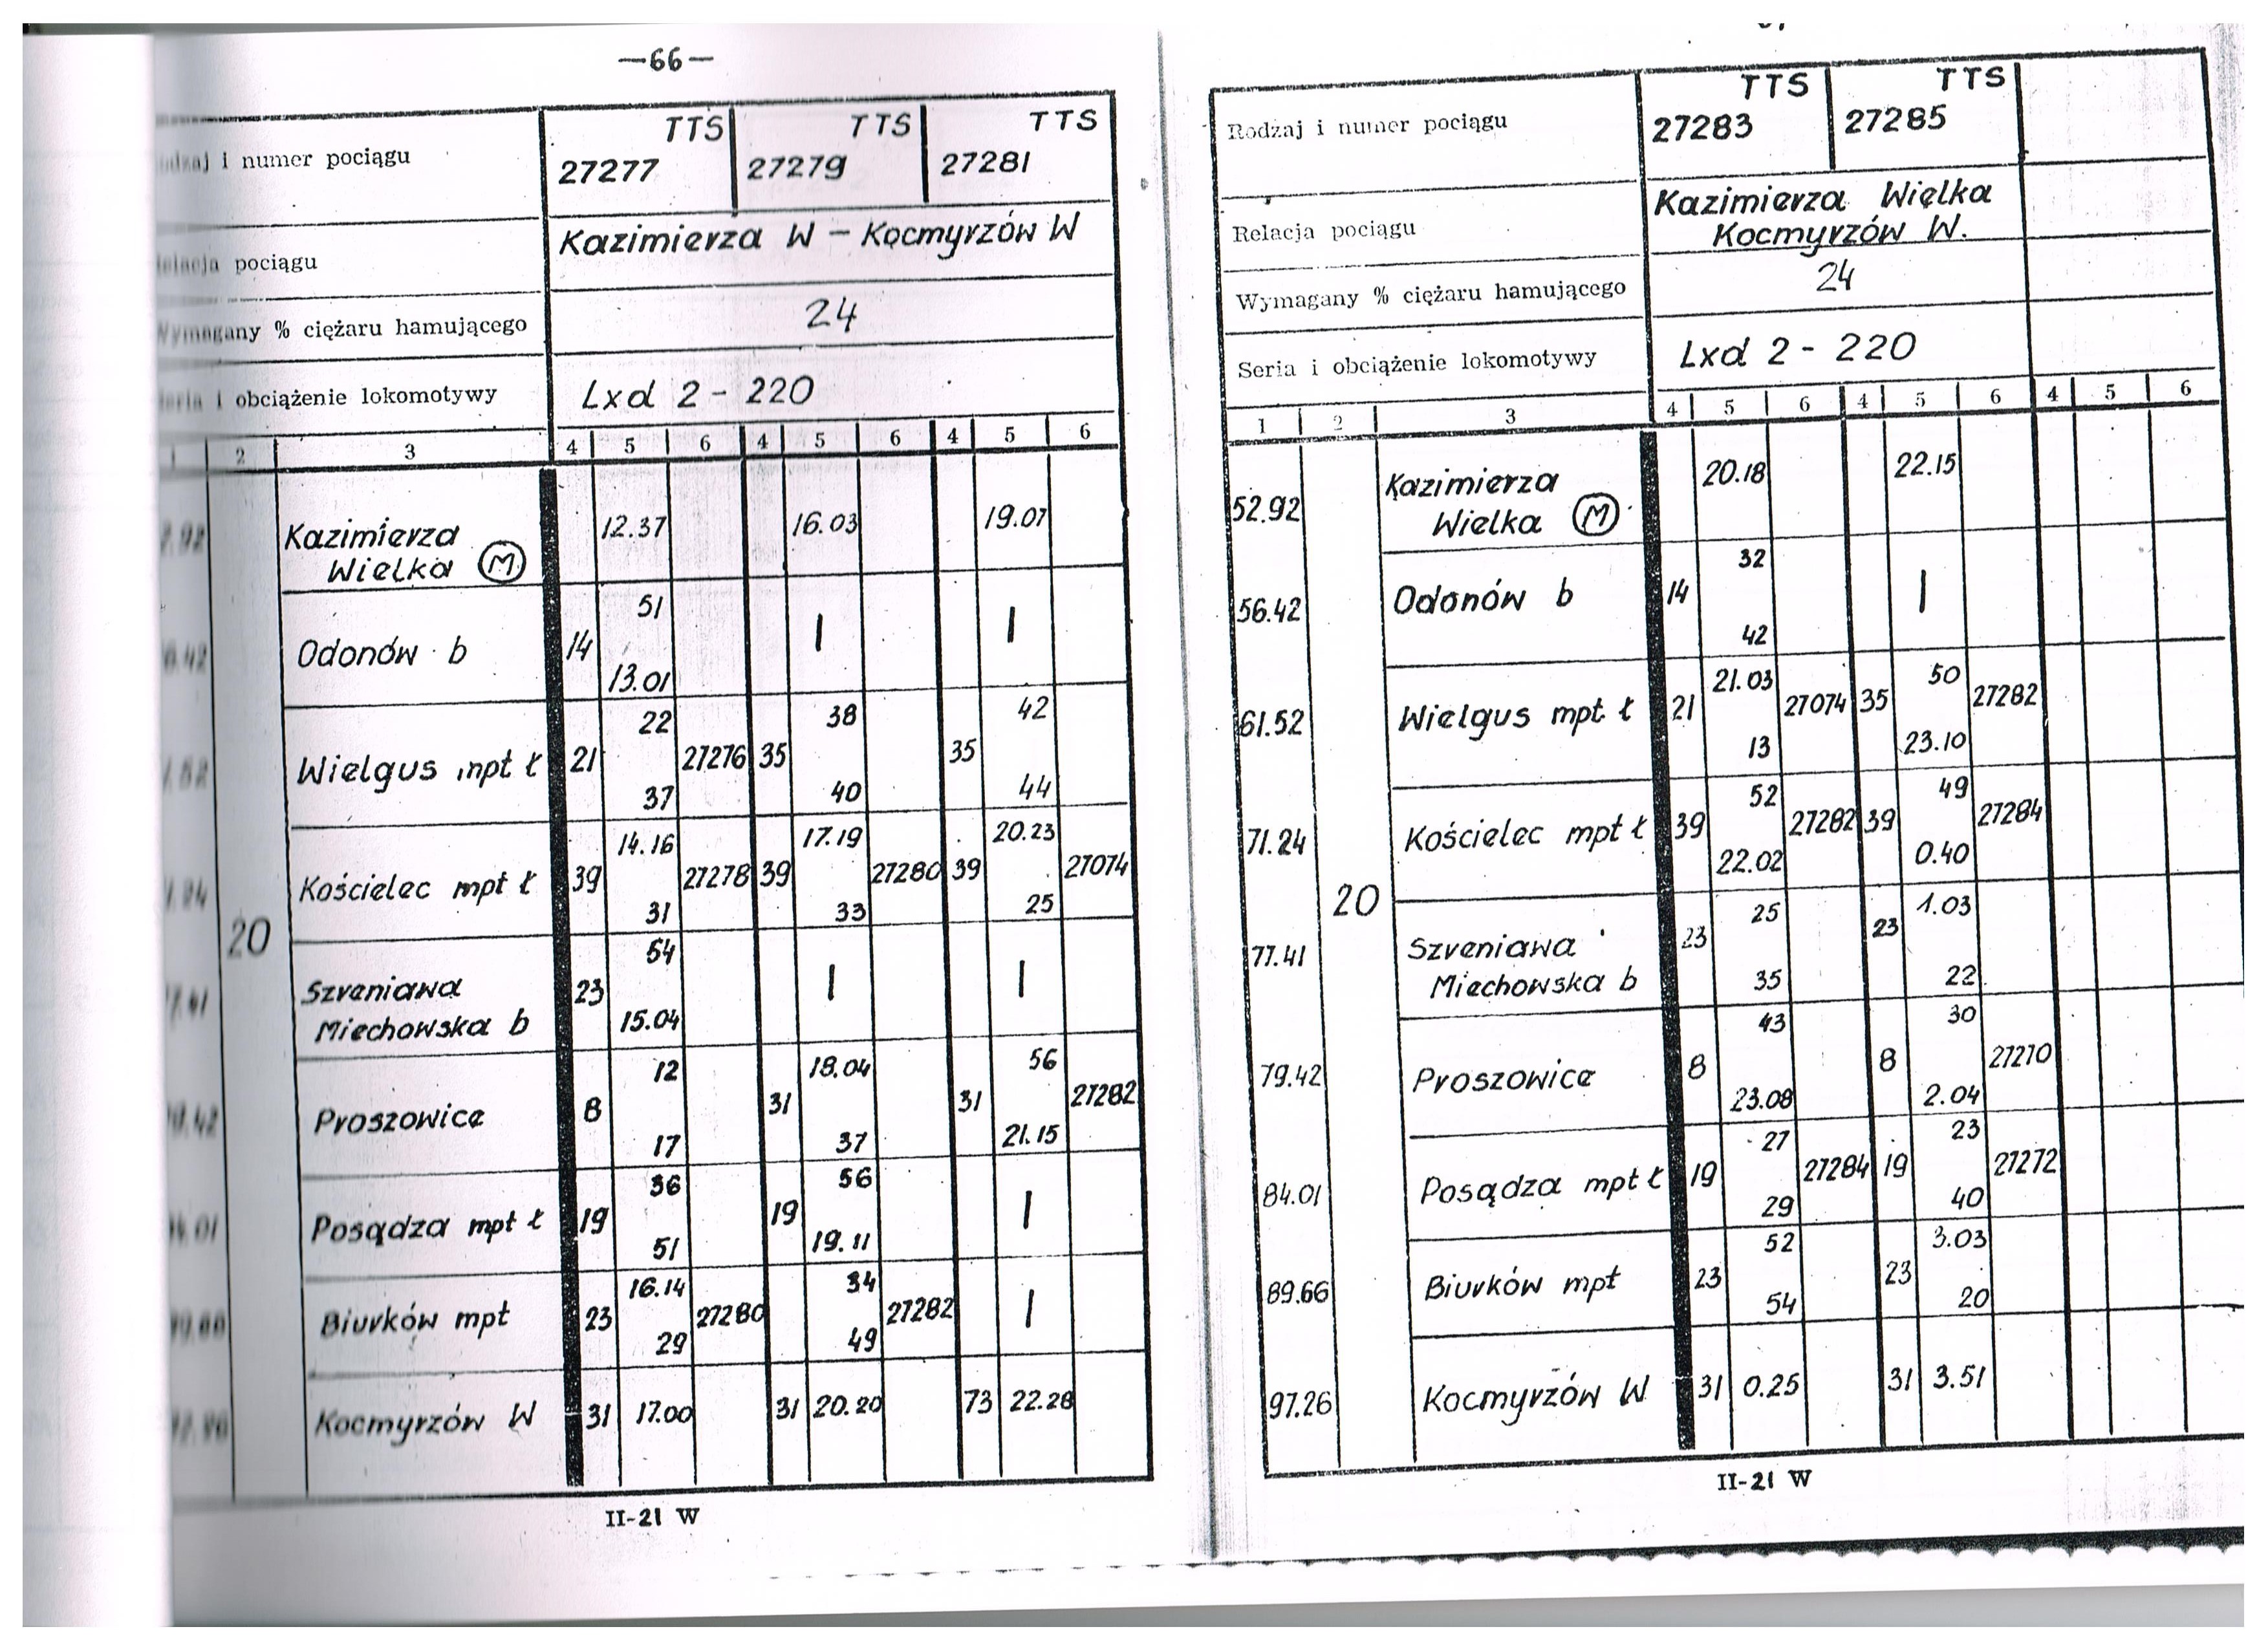 —66—
i numer pociągu
TTS TTS TTS
27277 27279 27281
pociągu
Kazimierza W – Kocmyrzów W
Wymagany % ciężaru hamującego
24
i obciążenie lokomotywy
Lxd 2 - 220
2 3 4 5 6 4 5 6 4 5 6
Kazimierza
Wielka (M)
12.37 16.03 19.07
51
Odonów b 14 | |
13.01
22 38 42
Wielgus mpt ł 21 27276 35 35
37 40 44
14.16 17.19 20.23
Kościelec mpt ł 39 27278 39 27280 39 27074
31 33 25
20
54
Szreniawa 23 | |
Miechowska b 15.04
12 18.04 56
Proszowice 8 31 31 27282
17 37 21.15
36 56
Posądza mpt ł 19 19 |
51 19.11
16.14 34
Biurków mpt 23 27280 27282 |
29 49
Kocmyrzów W 31 17.00 31 20.20 73 22.28
II-21 W
Rodzaj i numer pociągu
TTS TTS
27283 27285
Relacja pociągu
Kazimierza Wielka
Kocmyrzów W.
Wymagany % ciężaru hamującego
24
Seria i obciążenie lokomotywy
Lxd 2 - 220
1 2 3 4 5 6 4 5 6 4 5 6
52.92 Kazimierza 20.18 22.15
Wielka (M)
32
56.42 Odonów b 14 |
42
21.03 50
61.52 Wielgus mpt ł 21 27074 35 27282
13 23.10
52 49
71.24 Kościelec mpt ł 39 27282 39 27284
22.02 0.40
20
25 1.03
77.41 Szreniawa 23 23
Miechowska b 35 22
43 30
79.42 Proszowice 8 8 27270
23.08 2.04
27 23
84.01 Posądza mpt ł 19 27284 19 27272
29 40
52 3.03
89.66 Biurków mpt 23 23
54 20
97.26 Kocmyrzów W 31 0.25 31 3.51
II-21 W